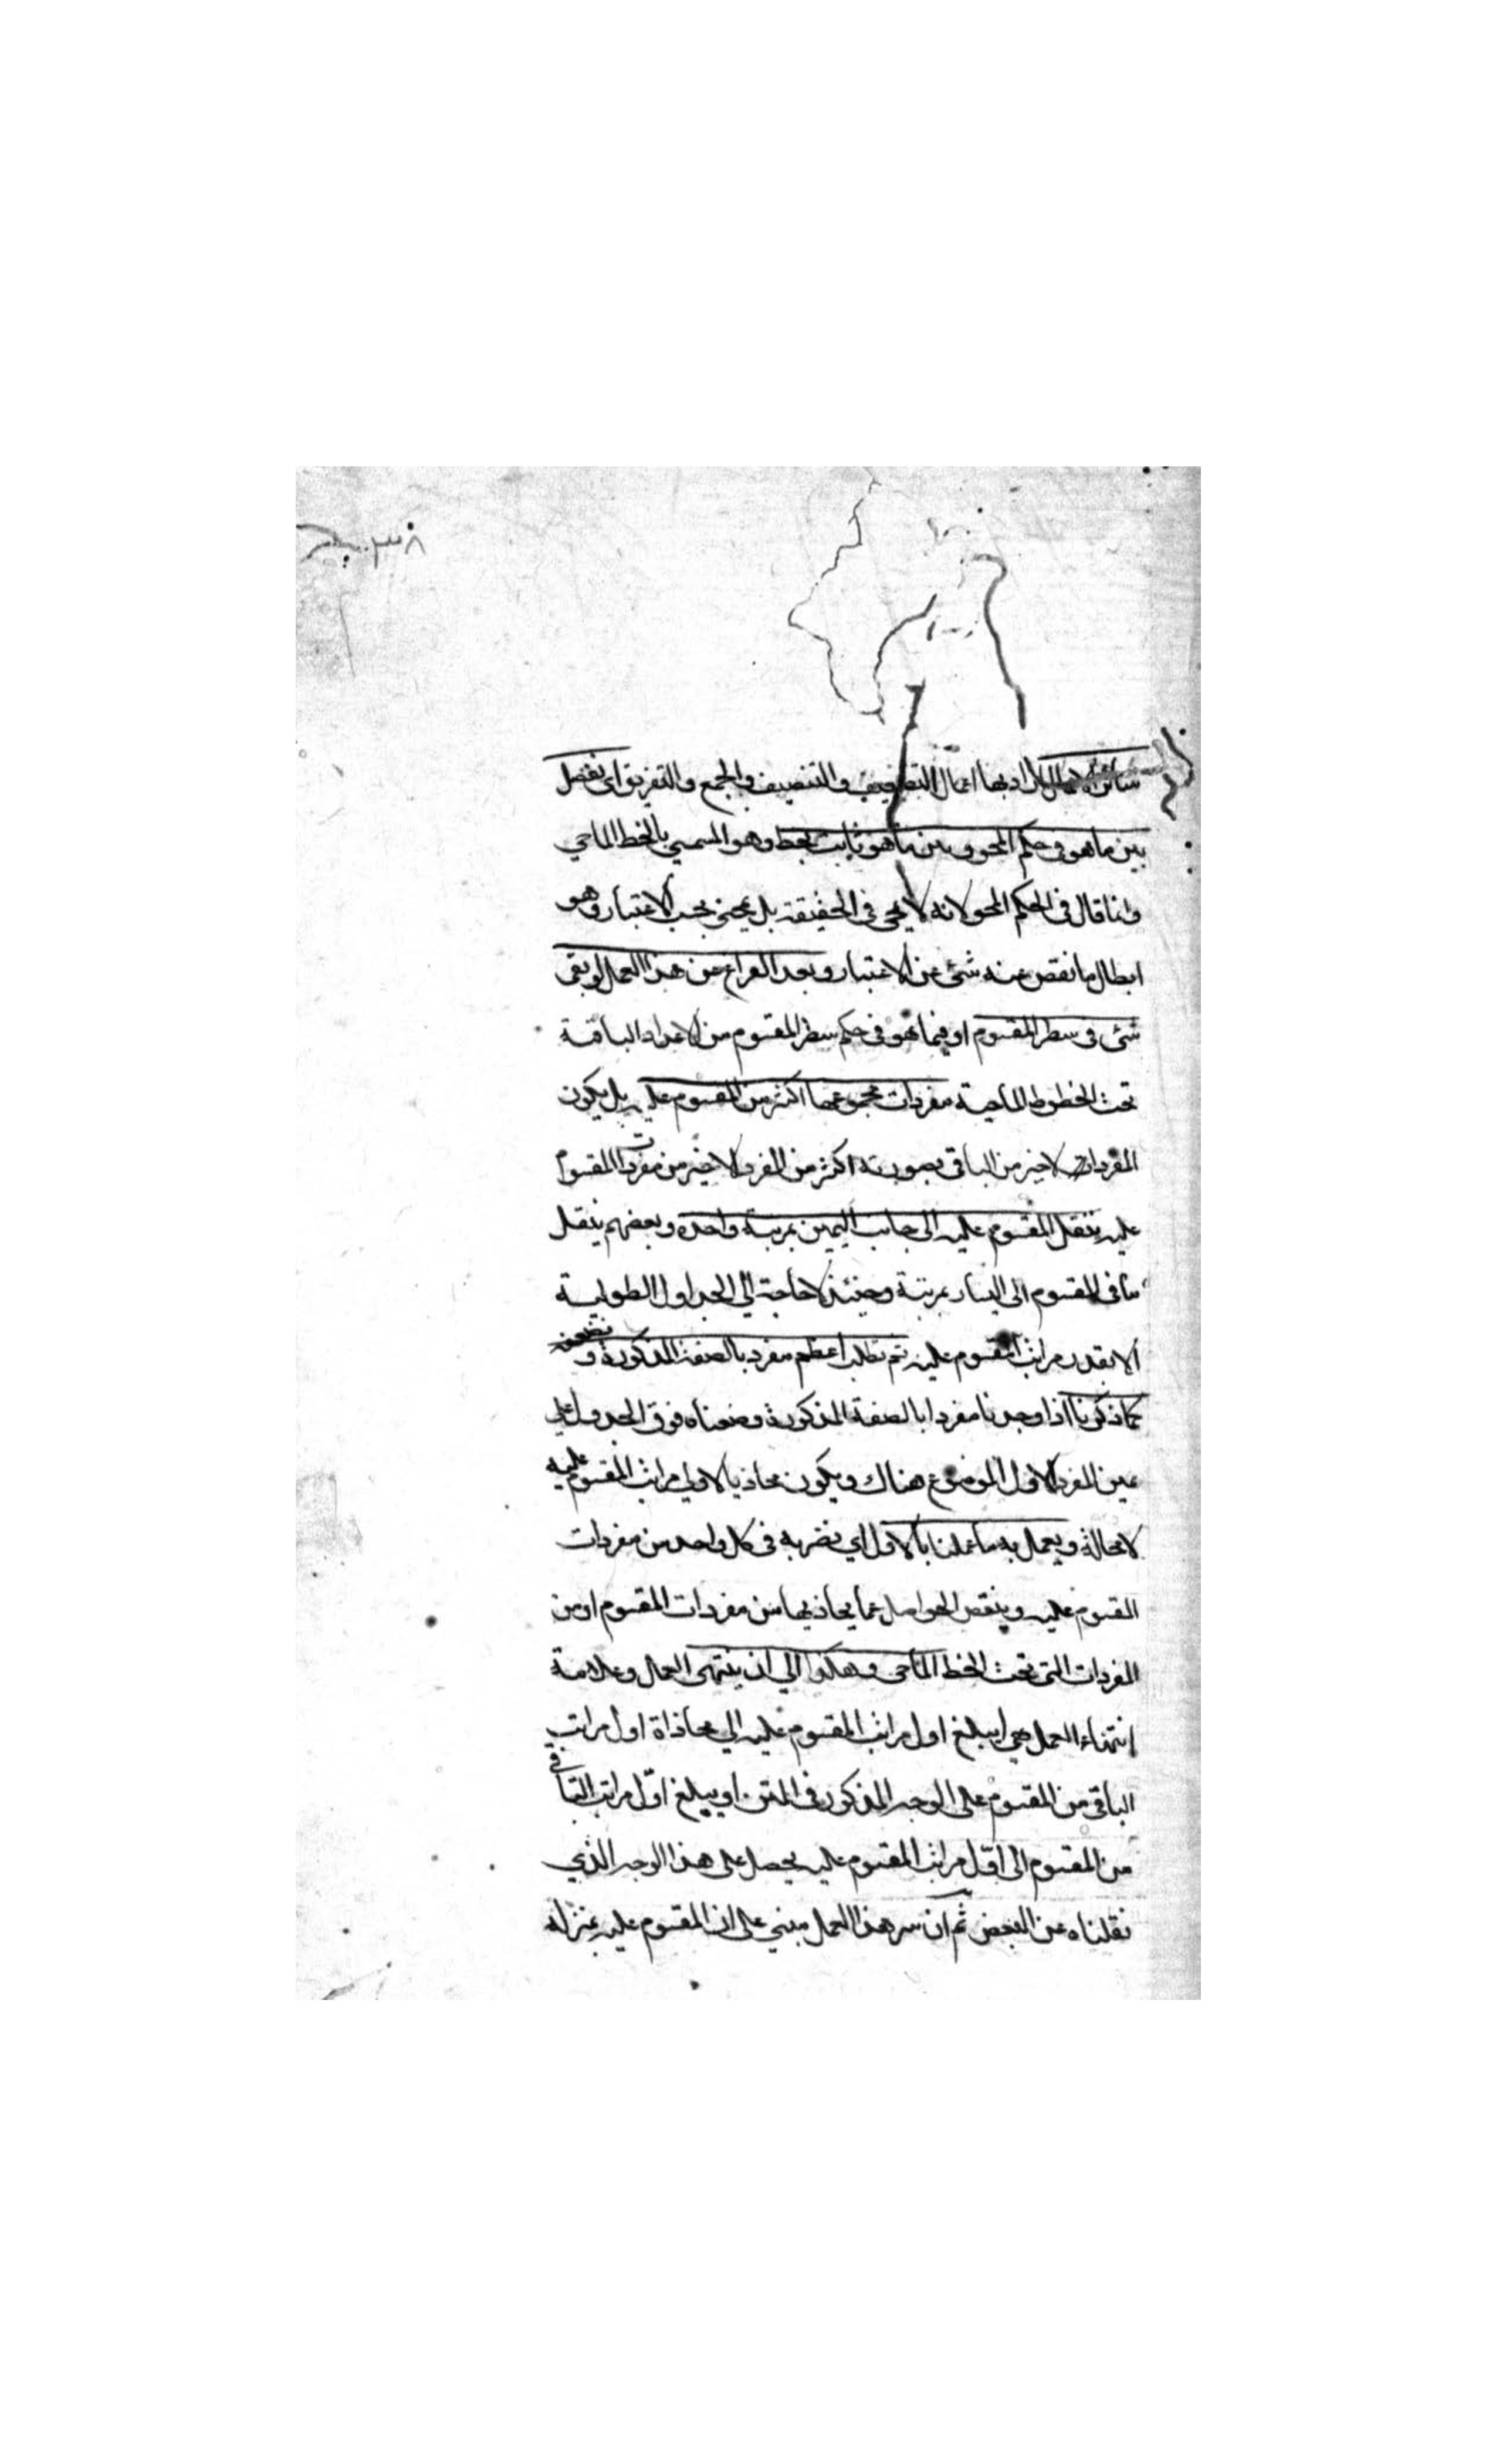 سائر الاعمال اراد بها اعمال التضعيف والتنصيف والجمع والتفريق اي نفصل
بين ما هو في حكم المحو وبين ما هو ثابت بخط وهو المسمي بالخط الماحي
وانما قال في الحكم المحو لانه لا يمحى في الحقيقة بل يمحى بحسب الاعتبار وهو
ابطال ما نقص عنه شئ عن الاعتبار وبعد الفراغ عن هذا العمل لو بقى
شئ في سطر المقسوم او فيما هو في حكم سطر المقسوم من الاعداد الباقية
تحت الخطوط الماحية مفردات مجموعها اكثر من المقسوم عليه بل يكون
المفردات الاخير من الباقي بصورته اكثر من المفرد الاخير من مفردات المقسوم
عليه ينقل المقسوم عليه الى جانب اليمين بمرتبة واحدة وبعضهم ينقل
ما في المقسوم الى اليسار بمرتبة وحينئذ لا حاجة الي الجداول الطولية
الا بقدر مراتب المقسوم عليه ثم نطلب اعظم مفرد بالصفة المذكورة ونضعه
كما ذكرنا اذا وجدنا مفردا بالصفة المذكورة وضعناه فوق الجدول علي
يمين المفرد الاول الموضوع هناك ويكون محاذيا لاولي مراتب المقسوم عليه
لا محالة ويعمل به ما عملنا بالاول اي نضربه في كل واحد من مفردات
المقسوم عليه وينقص الحواصل عما يحاذيها من مفردات المقسوم او من
المفردات التى تحت الخط الماحى وهكذا الي ان ينتهى العمل وعلامة
انتهاء العمل هي ان يبلغ اول مراتب المقسوم عليه الي محاذاة اول مراتب
الباقى من المقسوم على الوجه المذكور في المتن او يبلغ اول مراتب الباقي
من المقسوم الى اول مراتب المقسوم عليه يحصل على هذا الوجه الذي
نقلناه عن البعض ثم ان سر هذا العمل مبني على ان المقسوم عليه بمنزلة